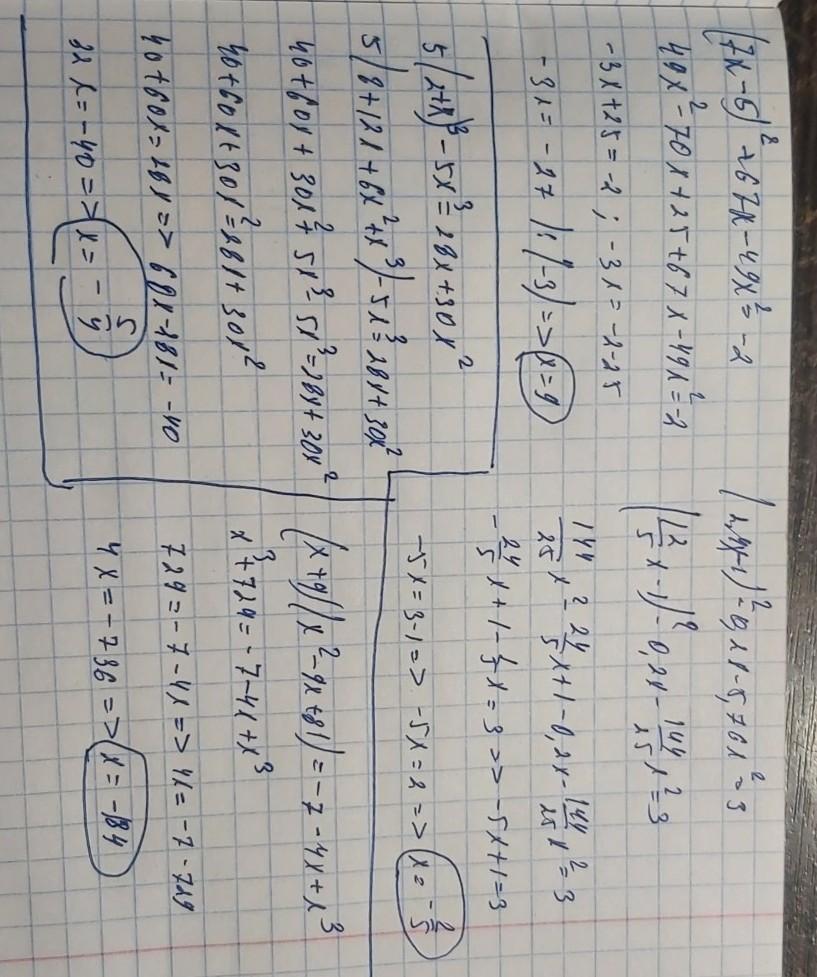 (7x-5)² + 67x - 49x² = -2
49x² - 70x + 25 + 67x - 49x² = -2
-3x + 25 = -2 ; -3x = -2-25
-3x = -27 |:(-3) => x = 9
5(2+x)³ - 5x³ = 28x + 30x²
5(8 + 12x + 6x² + x³) - 5x³ = 28x + 30x²
40 + 60x + 30x² + 5x³ - 5x³ = 28x + 30x²
40 + 60x + 30x² = 28x + 30x²
40 + 60x = 28x => 60x - 28x = -40
32x = -40 => x = -5/4
(2,4x-1)² - 0,2x - 5,76x² = 3
(12/5 x - 1)² - 0,2x - 144/25 x² = 3
144/25 x² - 24/5 x + 1 - 0,2x - 144/25 x² = 3
-24/5 x + 1 - 1/5 x = 3 => -5x + 1 = 3
-5x = 3-1 => -5x = 2 => x = -2/5
(x+9)(x² - 9x + 81) = -7 - 4x + x³
x³ + 729 = -7 - 4x + x³
729 = -7 - 4x => 4x = -7 - 729
4x = -736 => x = -184